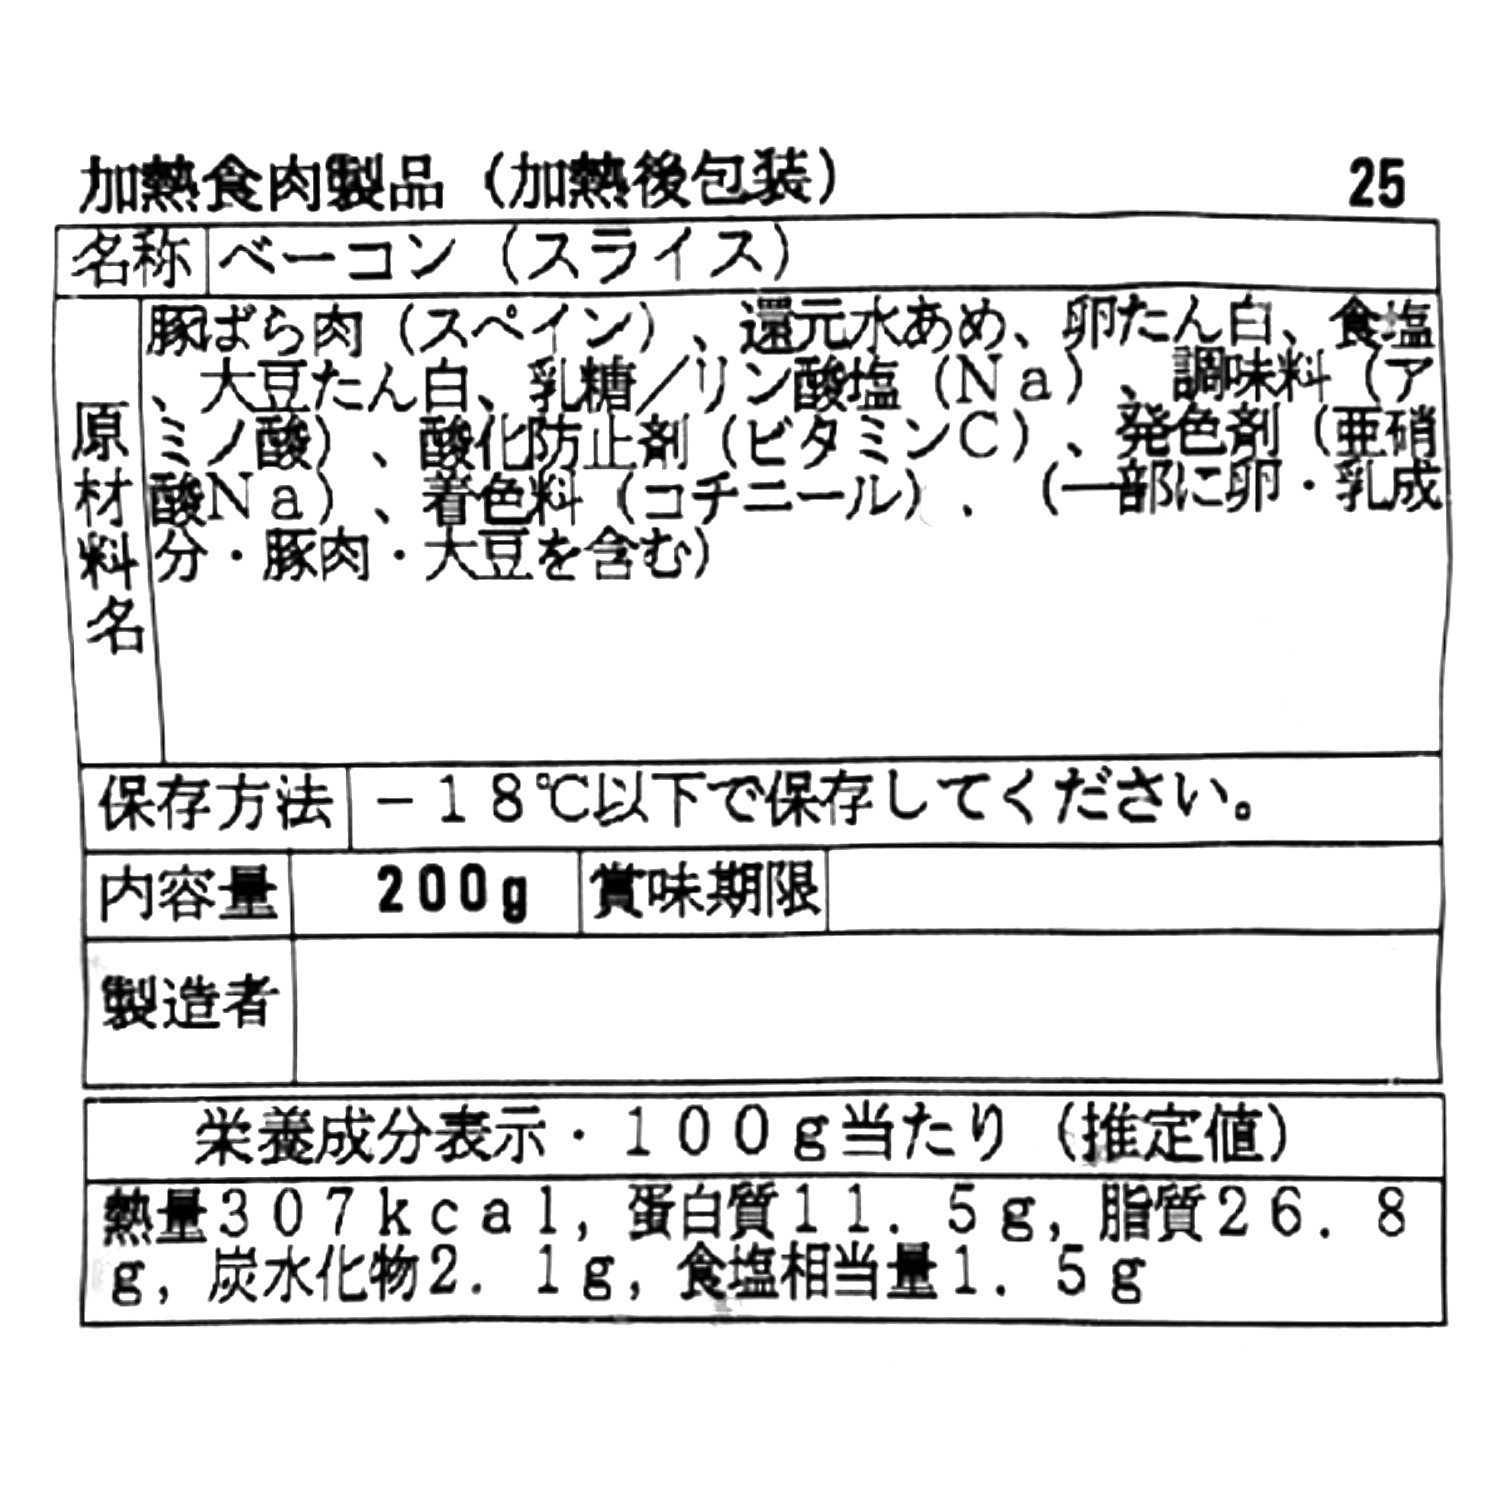 加熱食肉製品（加熱後包装） 25
名称 ベーコン（スライス）
原材料名
豚ばら肉（スペイン）、還元水あめ、卵たん白、食塩
、大豆たん白、乳糖／リン酸塩（Ｎａ）、調味料（ア
ミノ酸）、酸化防止剤（ビタミンＣ）、発色剤（亜硝
酸Ｎａ）、着色料（コチニール）．（一部に卵・乳成
分・豚肉・大豆を含む）
保存方法 －１８℃以下で保存してください。
内容量 200g 賞味期限
製造者
栄養成分表示・１００ｇ当たり（推定値）
熱量３０７ｋｃａｌ，蛋白質１１．５ｇ，脂質２６．８
ｇ，炭水化物２．１ｇ，食塩相当量１．５ｇ